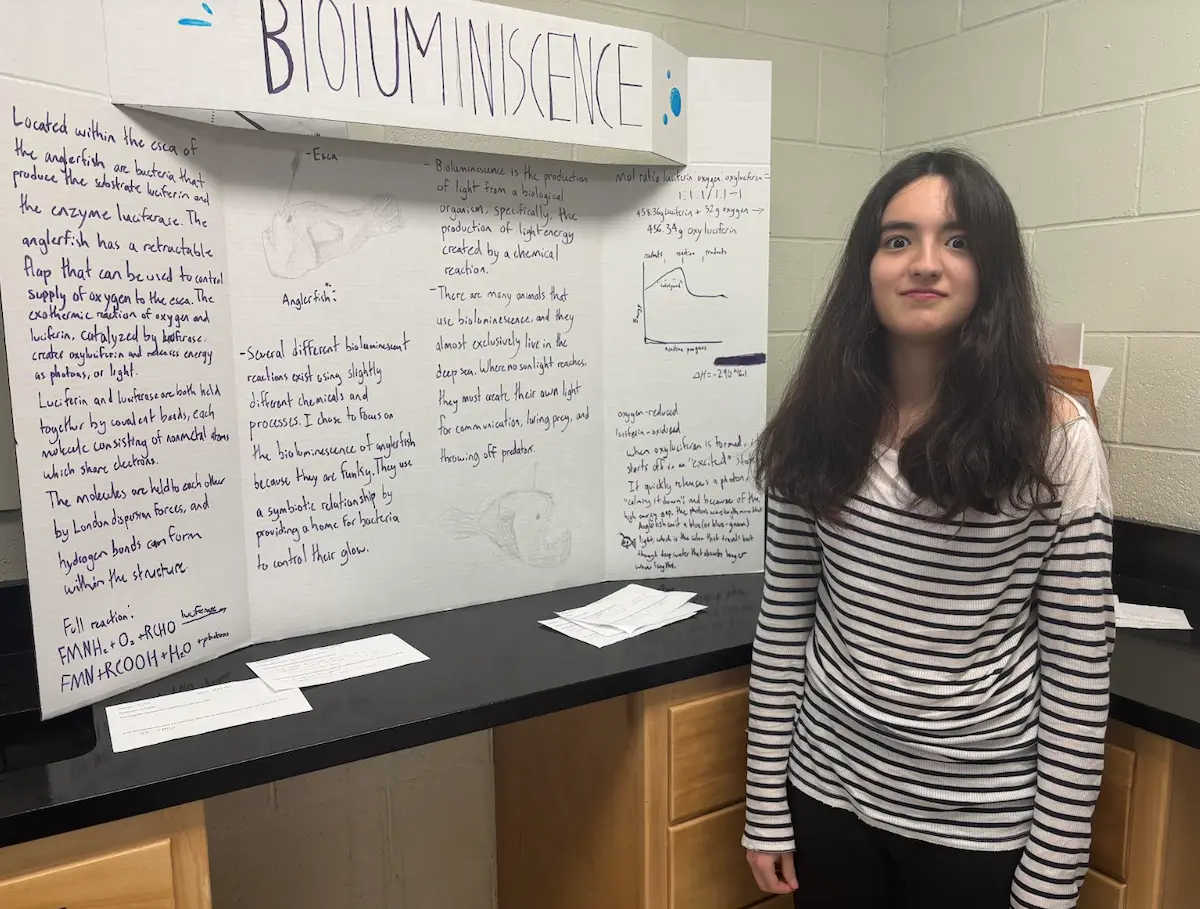 BIOlUMINISCENCE
Located within the esca of
the anglerfish are bacteria that
produce the substrate luciferin and
the enzyme luciferase. The
anglerfish has a retractable
flap that can be used to control
supply of oxygen to the esca. The
exothermic reaction of oxygen and
luciferin, catalyzed by luciferase,
creates oxyluciferin and releases energy
as photons, or light.
Luciferin and luciferase are both held
together by covalent bonds, each
molecule consisting of nonmetal atoms
which share electrons.
The molecules are held to each other
by London dispersion forces, and
hydrogen bonds can form
within the structure
Full reaction:
FMNH₂ + O₂ + RCHO luciferase→
FMN + RCOOH + H₂O + photons
- Esca
Anglerfish:
- Several different bioluminescent
reactions exist using slightly
different chemicals and
processes. I chose to focus on
the bioluminescence of anglerfish
because they are funky. They use
a symbiotic relationship by
providing a home for bacteria
to control their glow.
- Bioluminescence is the production
of light from a biological
organism, specifically, the
production of light energy
created by a chemical
reaction.
- There are many animals that
use bioluminescence, and they
almost exclusively live in the
deep sea. Where no sunlight reaches,
they must create their own light
for communication, luring prey, and
throwing off predators.
mol ratio luciferin: oxygen: oxyluciferin =
1:1:1 / 1:1→1
458.36g luciferin + 32g oxygen →
456.34g oxyluciferin
reaction products
Energy
Reaction progress
ΔH = -290
oxygen-reduced
luciferin-oxidised
when oxyluciferin is formed,
starts off in an "excited"
It quickly releases a photon,
"calming it down", and because of the
high energy gap, the photons
Anglerfish emit a blue (or blue-green)
light, which is the color that travels best
through deep water that absorbs longer
wavelengths.